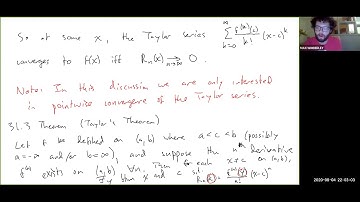 So at some x, the Taylor series ∞Σk=0 f^(k)(c)/k! (x-c)^k
converges to f(x) iff Rn(x) → n→∞ 0.
Note: In this discussion we are only interested
in pointwise convergence of the Taylor series.
31.3 Theorem (Taylor's Theorem)
Let f be defined on (a,b) where a<c<b (possibly
a=-∞ and/or b=∞), and suppose the nth derivative
f^(n) exists on (a,b) ∀n. Then for each x≠c on (a,b),
∃ y btwn x and c s.t. Rn(x) = f^(n)(y)/n! (x-c)^n
2020-08-04 22:03:03